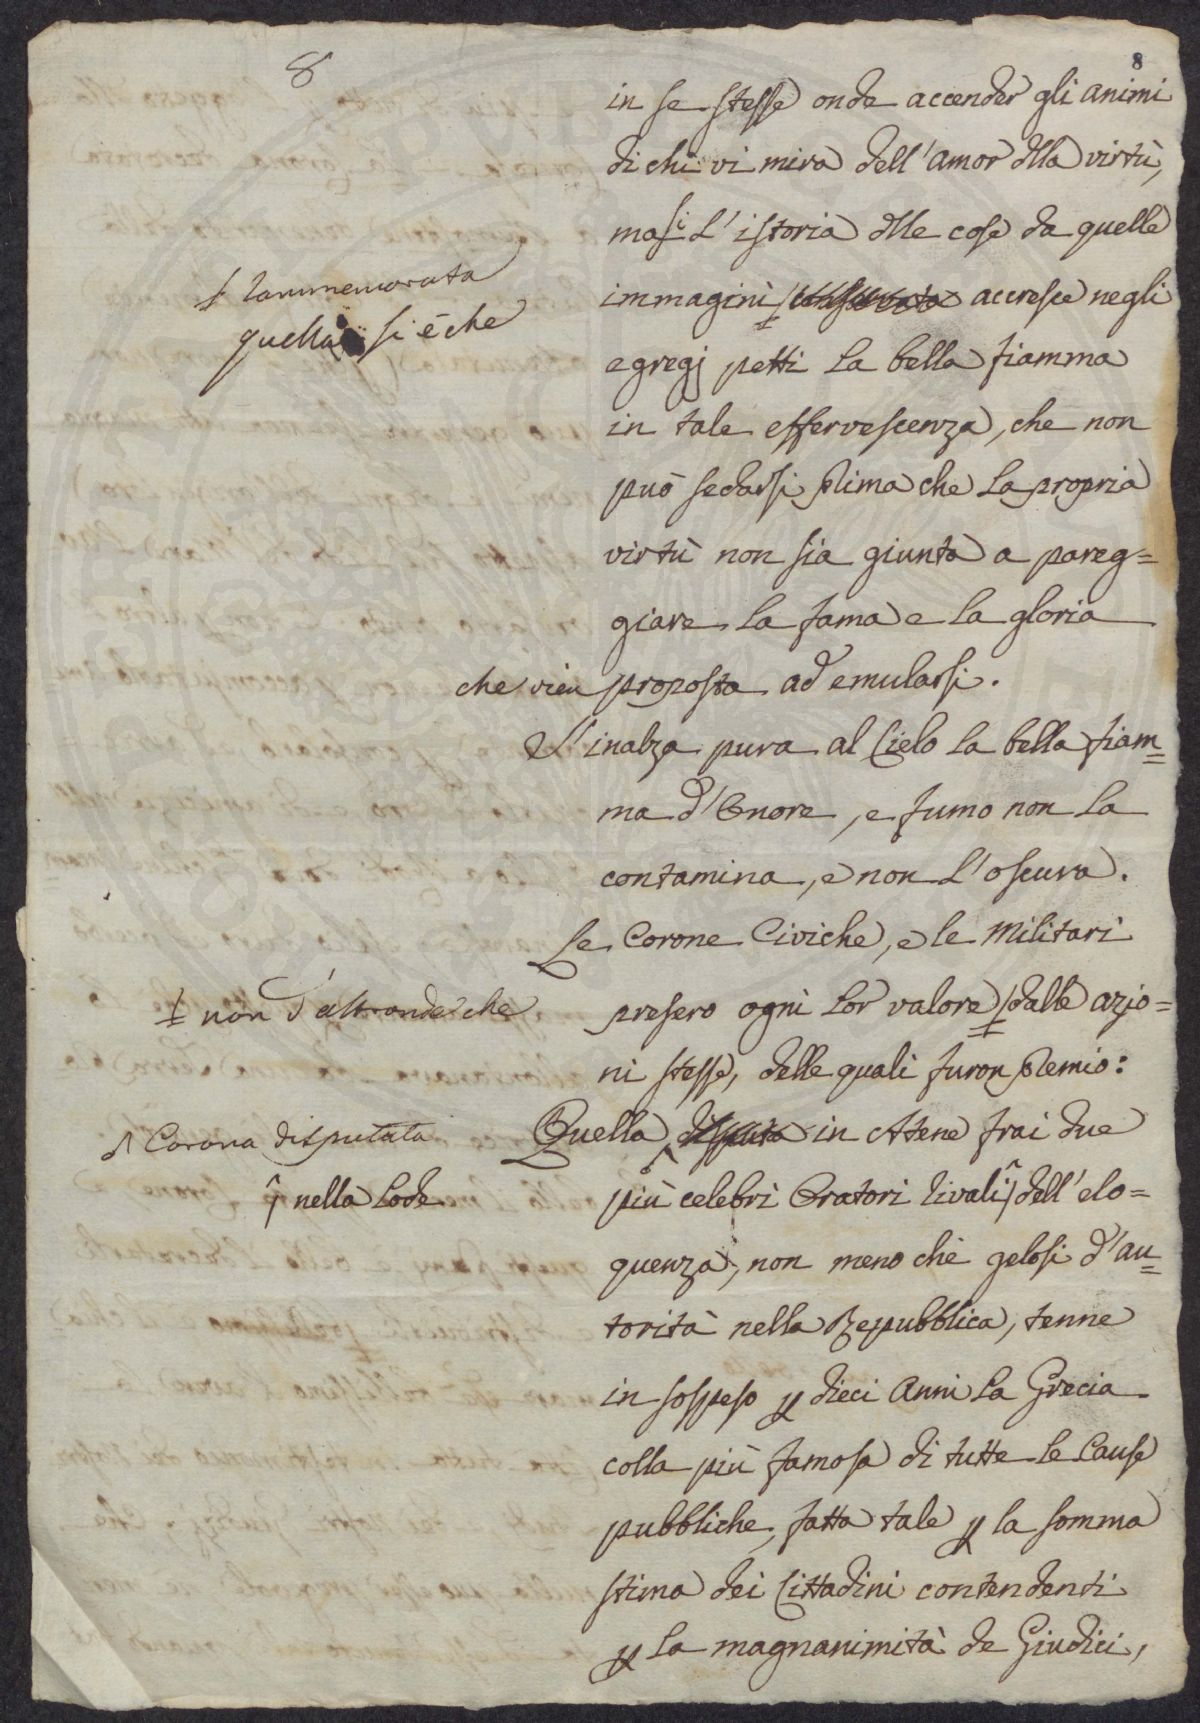 8
8
in se stesse onde accender gli animi
di chi vi mira dell'amor dlla virtù,
ma si l'istoria dlle cose da quelle
‡ rammemorata
quella si è che
immagini conservata accresce negli
egregj petti la bella fiamma
in tale effervescenza, che non
può sedarsi prima che la propria
virtù non sia giunta a pareg=
giare la fama e la gloria
che vien proposta ad emularsi.
S'inalza pura al Cielo la bella fiam=
ma d'Onore, e fumo non la
contamina, e non l'oscura.
Le Corone Civiche, e le Militari
‡ non d'altronde che
presero ogni lor valore dalle azio=
ni stesse, delle quali furon premio:
Corona disputata
Quella disputa in Atene frai due
nella lode
più celebri Oratori rivali dell'elo=
quenza, non meno che gelosi d'au=
torità nella Repubblica, tenne
in sospeso p dieci Anni la Grecia
colla più famosa di tutte le Cause
pubbliche, fatta tale p la somma
stima dei Cittadini contendenti
p la magnanimità de Giudici,